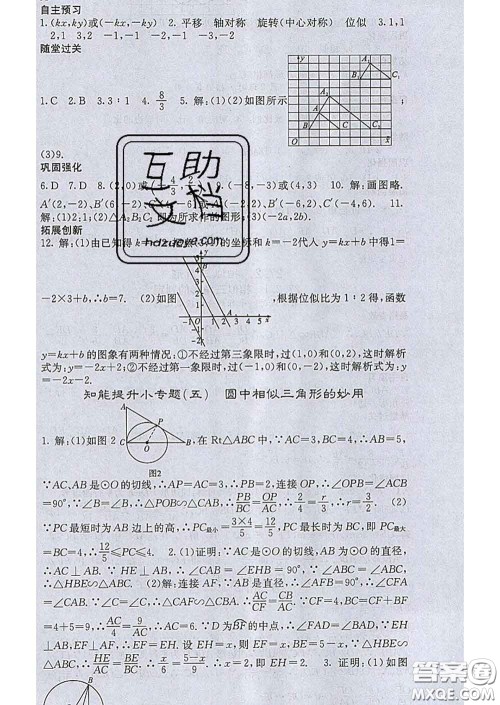 自主预习
1.(kx,ky)或(-kx,-ky) 2.平移 轴对称 旋转(中心对称) 位似 3.1,1
2,1 3,2 -1,-1 -2,-1 -3,-2
随堂过关
1.C 2.B 3.3∶1 4.8/3 5.解:(1)(2)如图所示 ;
(3)9.
巩固强化
6.D 7.D 8.(2,0)或 9.(-8,-3)或(4,3) 10.解:画图略.
A′(2,-2),B′(6, C′ D′(-2,-6),C′(-4,6).
11.解:(1)2;1;(2)△A₂B₂C₂即为所求作的图形;(3)(-2a,2b).
拓展创新
12.解:(1)由已知得 的坐标和k=-2代人y=kx+b中得1=
-2×3+b,∴b=7. (2)如图 ,根据位似比为1∶2得,函数
y=kx+b的图象有两种情况:①不经过第三象限时,过(1,0)和(0,2),这时解析
式为:y=-2x+2;②不经过第一象限时,过(-1,0)和(0,-2),这时解析式为:y
=-2x-2.
知能提升小专题(五) 圆中相似三角形的妙用
1.解:(1)如图2 ,在Rt△ABC中,∵AC=3,BC=4,∴AB=5,
图2
∵AC,AB是⊙O的切线,∴AP=AC=3,∴PB=2,连接OP,∴∠OPB=∠ACB
=90°,∵∠B=∠B,∴△POB∽△CAB,∴PB/BC=OP/AC,∴2/4=r/3,∴r=3/2. (2)
∵PC最短时为AB边上的高,∴PC最小=3×4/5=12/5,PC最长时为BC,即PC最大
=BC=4,∴12/5≤PC≤4. 2.(1)证明:∵AC是⊙O的切线,AB为⊙O的直径,
∴AC⊥AB. ∵EH⊥AB,∴∠CAB=∠EHB=90°,∵∠ABC=∠EBH,
∴△HBE∽△ABC. (2)解:连接AF,∵AB是直径,∴∠AFB=90°,∴∠CFA
=∠CAB. ∵∠C=∠C,∴△CAF∽△CBA. ∴AC/CF=CB/AC,∵CB=CF+BF
=4+5=9,∴AC=6. ∵D为BF的中点,∴∠FAD=∠BAD,∵EF⊥AF,
EH⊥AB,∴EF=EH. 设EH=x,则EF=x,BE=5-x,∵△HBE∽
△ABC,∴HE/AC=BE/BC. ∴x/6=5-x/9. ∴x=2,即EH=2. 3.证明:(1)如图
互助文档
hdzuoye.com
作业精灵
MXQE.COM